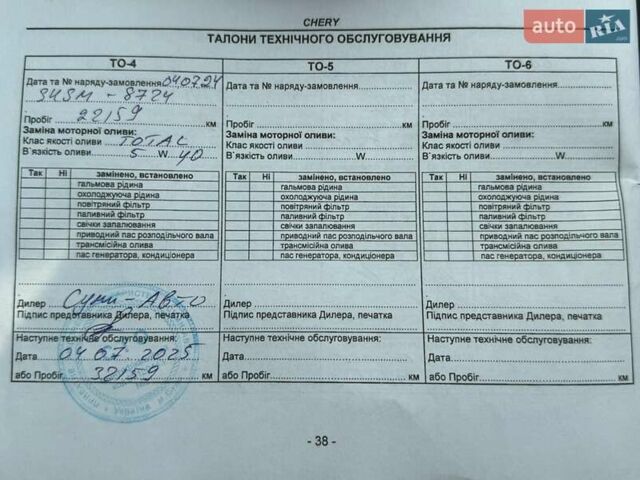 CHERY
auto RIA .com
ТАЛОНИ ТЕХНІЧНОГО ОБСЛУГОВУВАННЯ
ТО-4
Дата та № наряду-замовлення 04.07.24
- 8724
22159
Пробіг км
Заміна моторної оливи:
Клас якості оливи TOTAL
В`язкість оливи 5 W 40
Так Ні замінено, встановлено
гальмова рідина
охолоджуюча рідина
повітряний фільтр
паливний фільтр
свічки запалювання
приводний пас розподільчого вала
трансмісійна олива
пас генератора, кондиціонера
Дилер Суми-Авто
Підпис представника Дилера, печатка
Наступне технічне обслуговування:
Дата 04 07. 2025
або Пробіг 32159 км
ТО-5
Дата та № наряду-замовлення
Пробіг км
Заміна моторної оливи:
Клас якості оливи
В`язкість оливи W
Так Ні замінено, встановлено
гальмова рідина
охолоджуюча рідина
повітряний фільтр
паливний фільтр
свічки запалювання
приводний пас розподільчого вала
трансмісійна олива
пас генератора, кондиціонера
Дилер
Підпис представника Дилера, печатка
Наступне технічне обслуговування:
Дата
або Пробіг км
ТО-6
Дата та № наряду-замовлення
Пробіг км
Заміна моторної оливи:
Клас якості оливи
В`язкість оливи W
Так Ні замінено, встановлено
гальмова рідина
охолоджуюча рідина
повітряний фільтр
паливний фільтр
свічки запалювання
приводний пас розподільчого вала
трансмісійна олива
пас генератора, кондиціонера
Дилер
Підпис представника Дилера, печатка
Наступне технічне обслуговування:
Дата
або Пробіг км
- 38 -